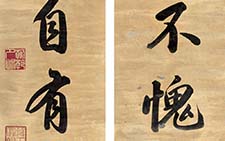 不愧
自有